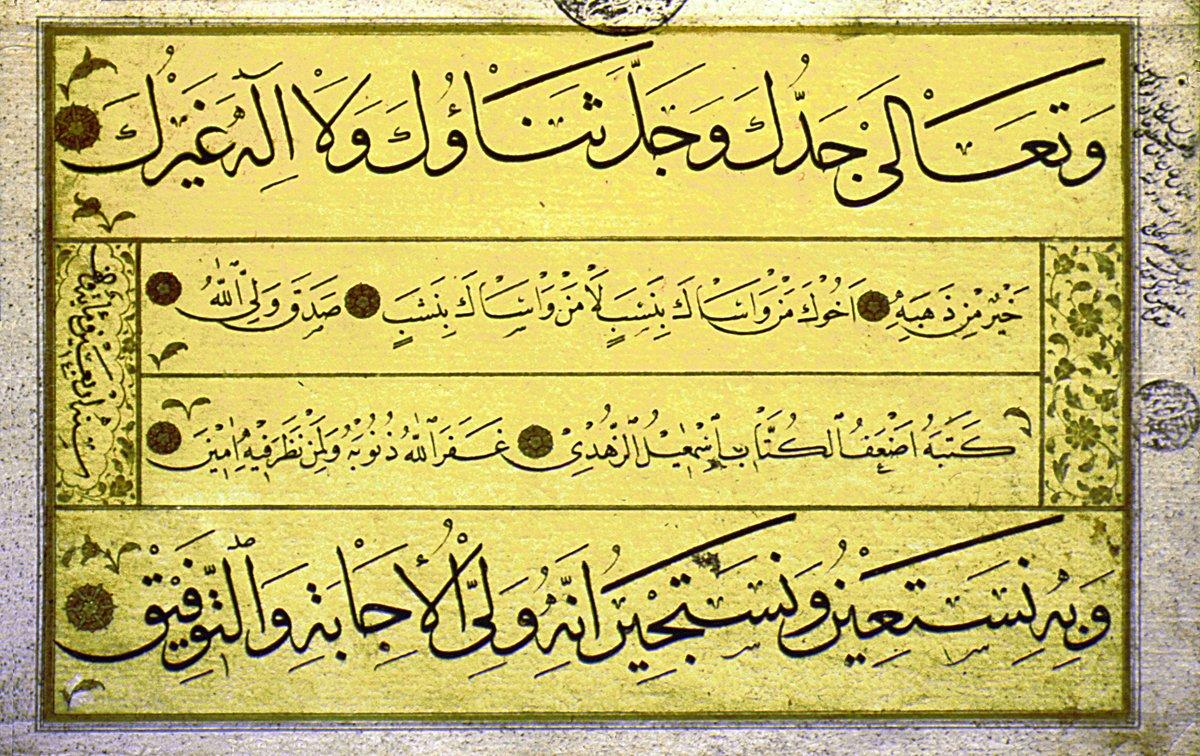 وَتَعَالىٰ جَدُّكَ وَجَلَّ ثَنَاؤُكَ وَلَا اِلٰهَ غَيْرُكَ
خَيْرٌ مِنْ ذَهَبِهِ اَخُوكَ مَنْ وَاسَاكَ بِنَسَبٍ لَا مَنْ وَاسَاكَ بِنَشَبٍ صَدَقَ وَلِيُّ اللّٰهِ
كَتَبَهُ اَضْعَفُ الْكُتَّابِ اِسْمٰعِيلُ الزُّهْدِي غَفَرَ اللّٰهُ ذُنُوبَهُ وَلِمَنْ نَظَرَ فِيهِ اٰمِينَ
وَبِهِ نَسْتَعِينُ وَنَسْتَجِيرُ اِنَّهُ وَلِيُّ الْاِجَابَةِ وَالتَّوْفِيقِ